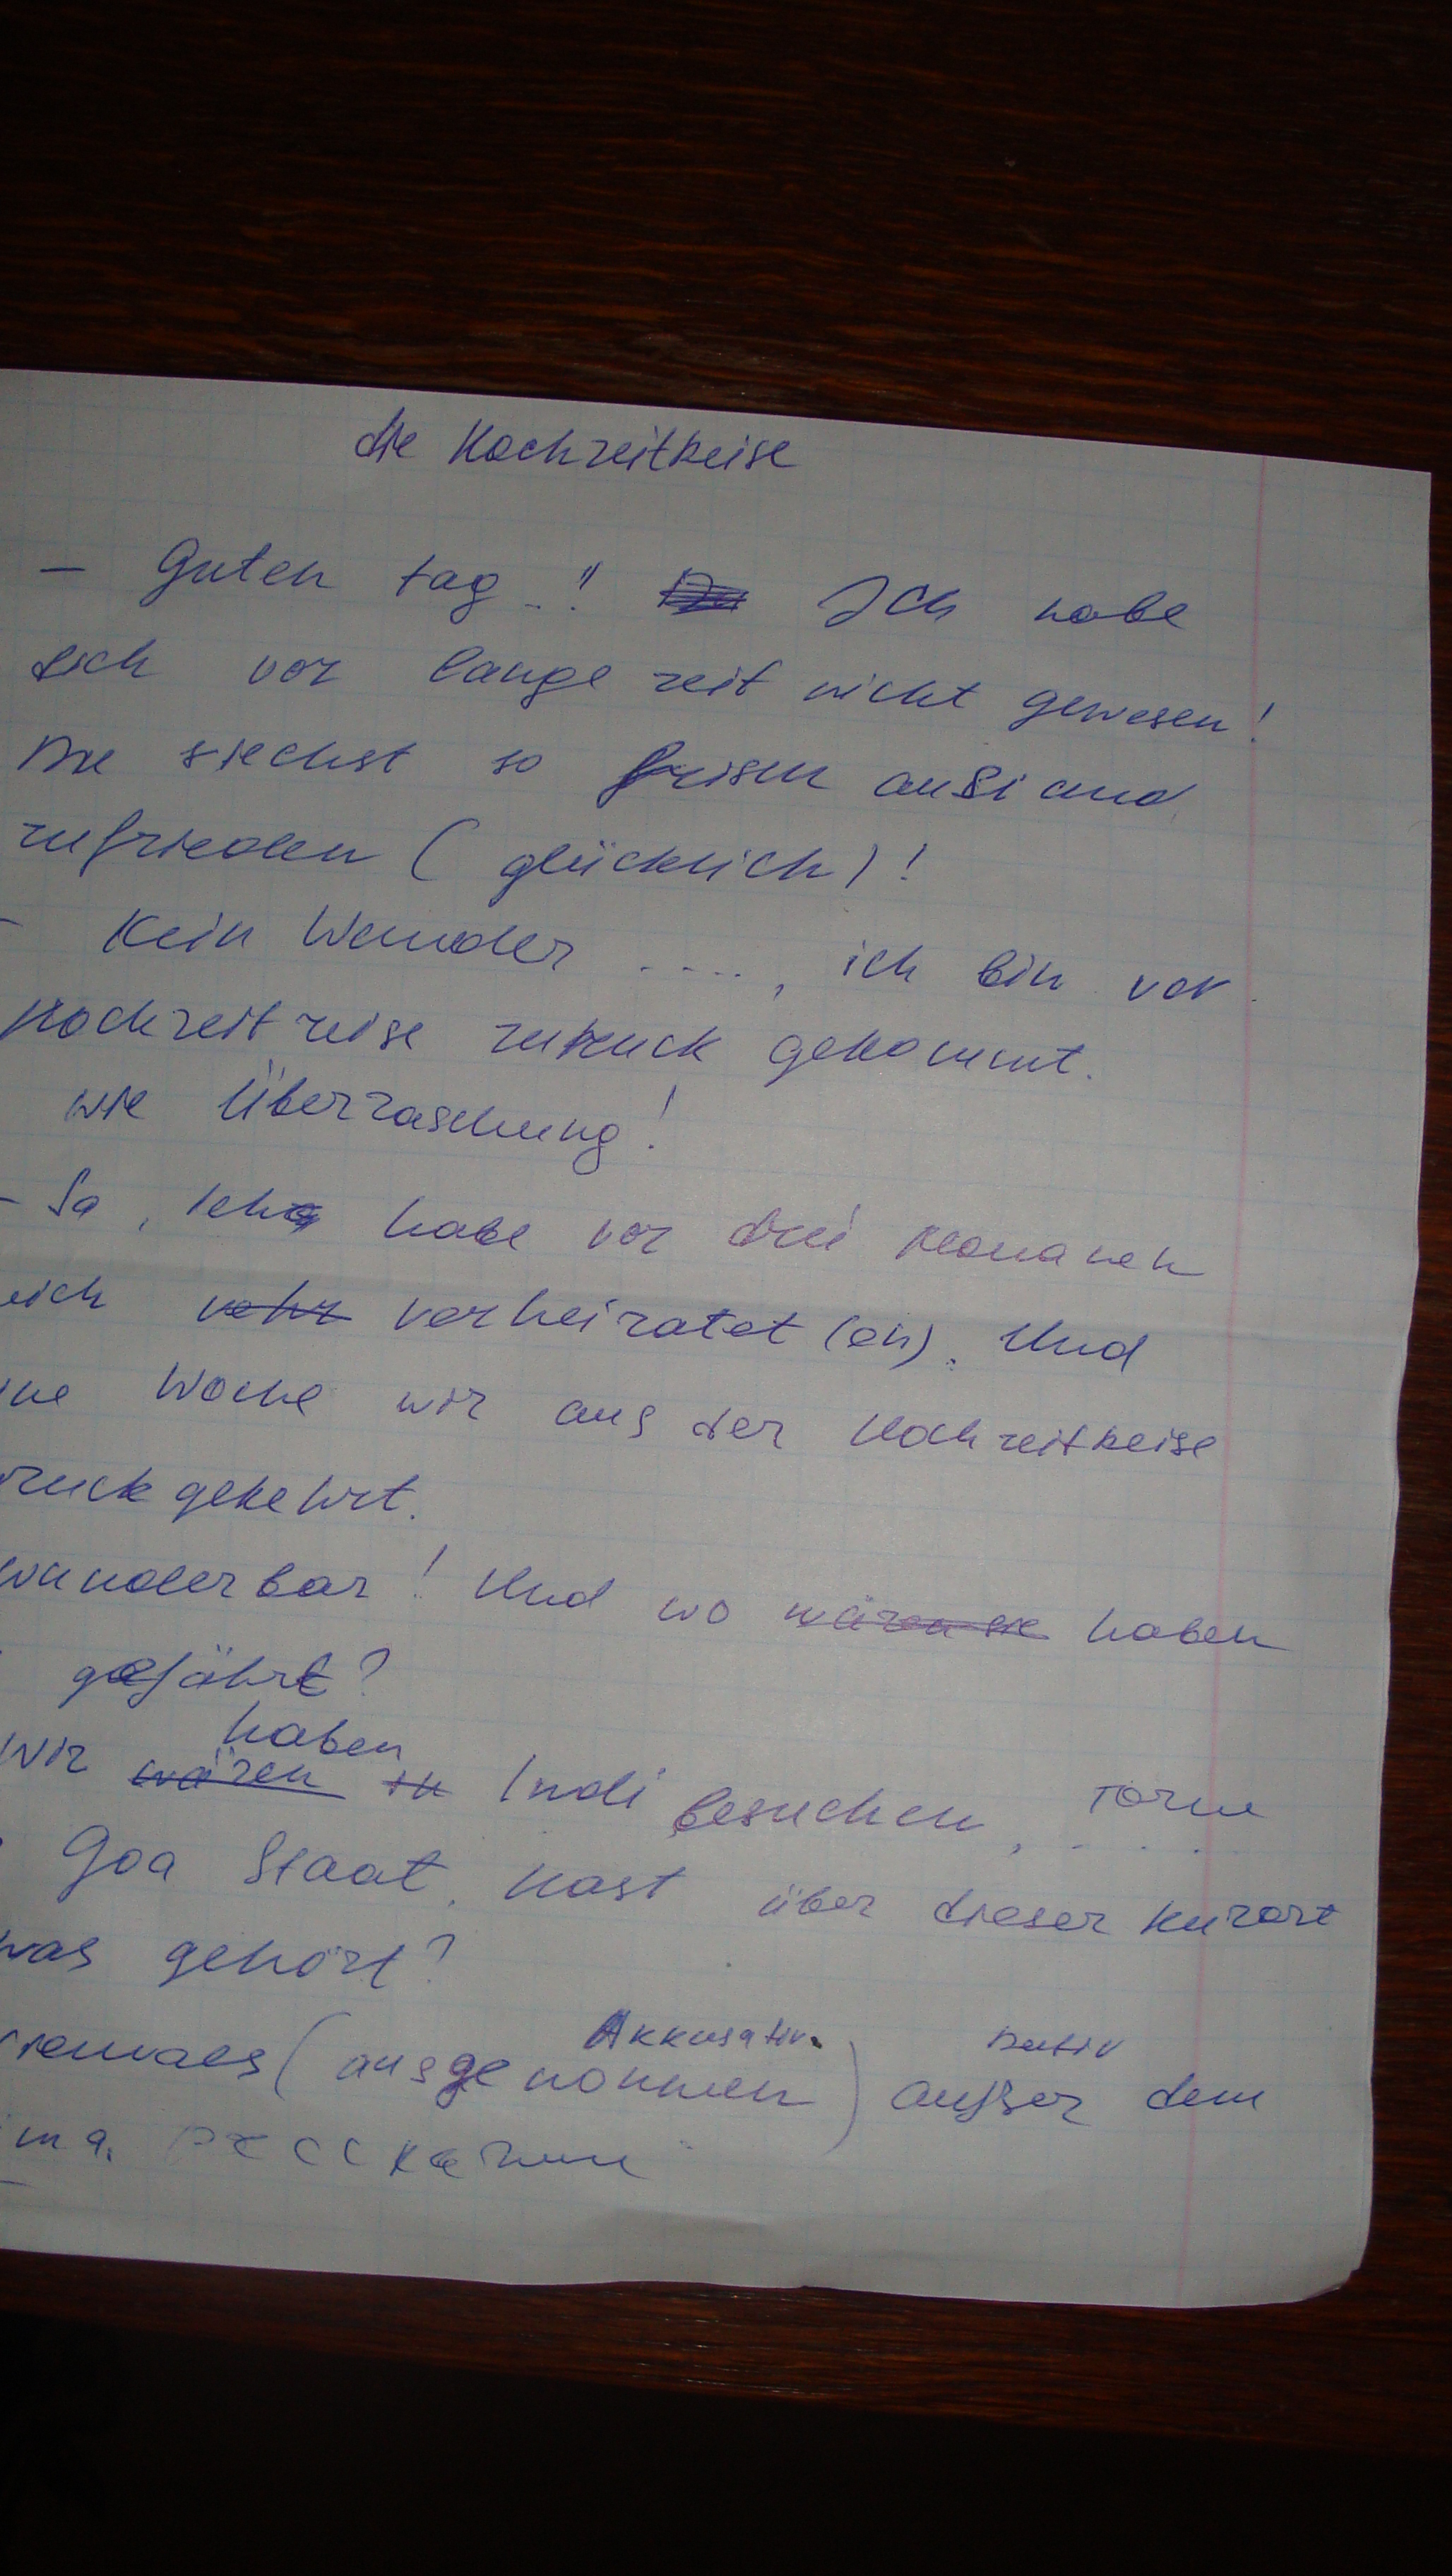 die Hochzeitreise
- Guten tag..! Ich habe
dich vor lange zeit nicht gewesen!
Die siechst so frisch aus und
zufrieden (glücklich)!
- Kein Wunder ...., ich bin vor
Hochzeitreise zuruck gekommt.
wie Überraschung!
- Ja, Ich habe vor drei Monaneh
mich verheiratet (en). Und
ine Woche wir aus der Hochzeitreise
ruck gekehrt.
wunderbar! Und wo haben
gefährt?
haben
Wir wären in Indi besuchen, точне
Goa Staat. Hast über dieser Kurort
was gehört?
Akkusativ Dativ
niemals (ausgenommen) außer dem